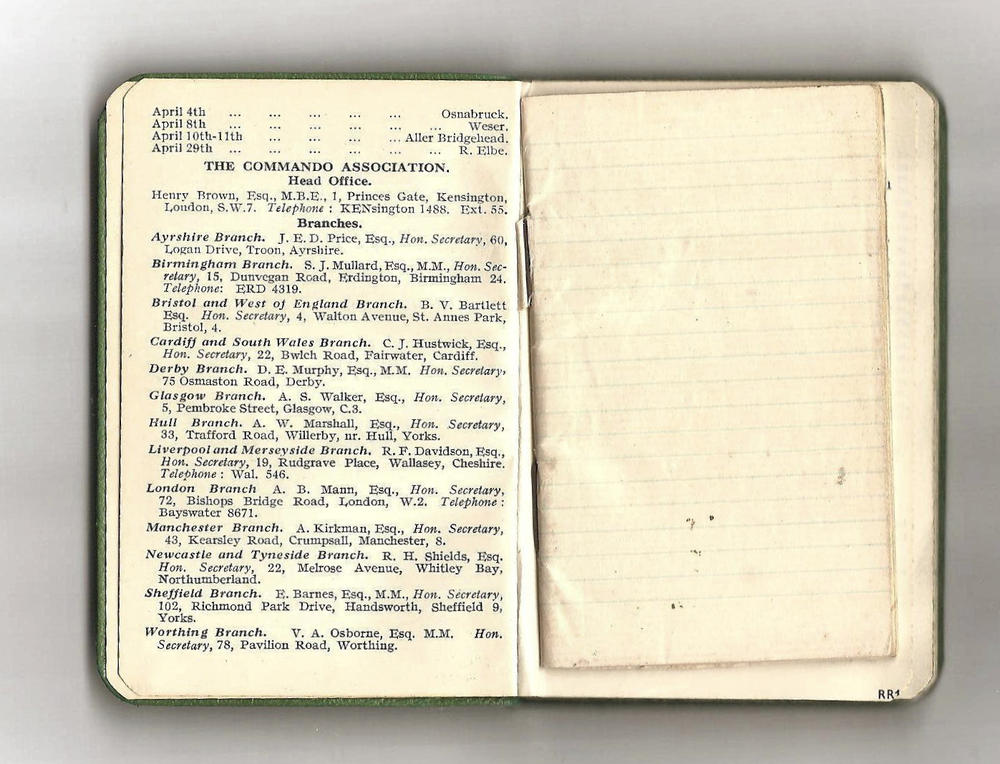 April 4th ... ... ... ... ... Osnabruck.
April 8th ... ... ... ... ... ... Weser.
April 10th-11th ... ... ... ... ... Aller Bridgehead.
April 29th ... ... ... ... ... ... R. Elbe.
THE COMMANDO ASSOCIATION.
Head Office.
Henry Brown, Esq., M.B.E., 1, Princes Gate, Kensington,
London, S.W.7. Telephone : KENsington 1488. Ext. 55.
Branches.
Ayrshire Branch. J. E. D. Price, Esq., Hon. Secretary, 60,
Logan Drive, Troon, Ayrshire.
Birmingham Branch. S. J. Mullard, Esq., M.M., Hon. Sec-
retary, 15, Dunvegan Road, Erdington, Birmingham 24.
Telephone: ERD 4319.
Bristol and West of England Branch. B. V. Bartlett
Esq. Hon. Secretary, 4, Walton Avenue, St. Annes Park,
Bristol, 4.
Cardiff and South Wales Branch. C. J. Hustwick, Esq.,
Hon. Secretary, 22, Bwlch Road, Fairwater, Cardiff.
Derby Branch. D. E. Murphy, Esq., M.M. Hon. Secretary,
75 Osmaston Road, Derby.
Glasgow Branch. A. S. Walker, Esq., Hon. Secretary,
5, Pembroke Street, Glasgow, C.3.
Hull Branch. A. W. Marshall, Esq., Hon. Secretary,
33, Trafford Road, Willerby, nr. Hull, Yorks.
Liverpool and Merseyside Branch. R. F. Davidson, Esq.,
Hon. Secretary, 19, Rudgrave Place, Wallasey, Cheshire.
Telephone : Wal. 546.
London Branch A. B. Mann, Esq., Hon. Secretary,
72, Bishops Bridge Road, London, W.2. Telephone :
Bayswater 8671.
Manchester Branch. A. Kirkman, Esq., Hon. Secretary,
43, Kearsley Road, Crumpsall, Manchester, 8.
Newcastle and Tyneside Branch. R. H. Shields, Esq.
Hon. Secretary, 22, Melrose Avenue, Whitley Bay,
Northumberland.
Sheffield Branch. E. Barnes, Esq., M.M., Hon. Secretary,
102, Richmond Park Drive, Handsworth, Sheffield 9,
Yorks.
Worthing Branch. V. A. Osborne, Esq. M.M. Hon.
Secretary, 78, Pavilion Road, Worthing.